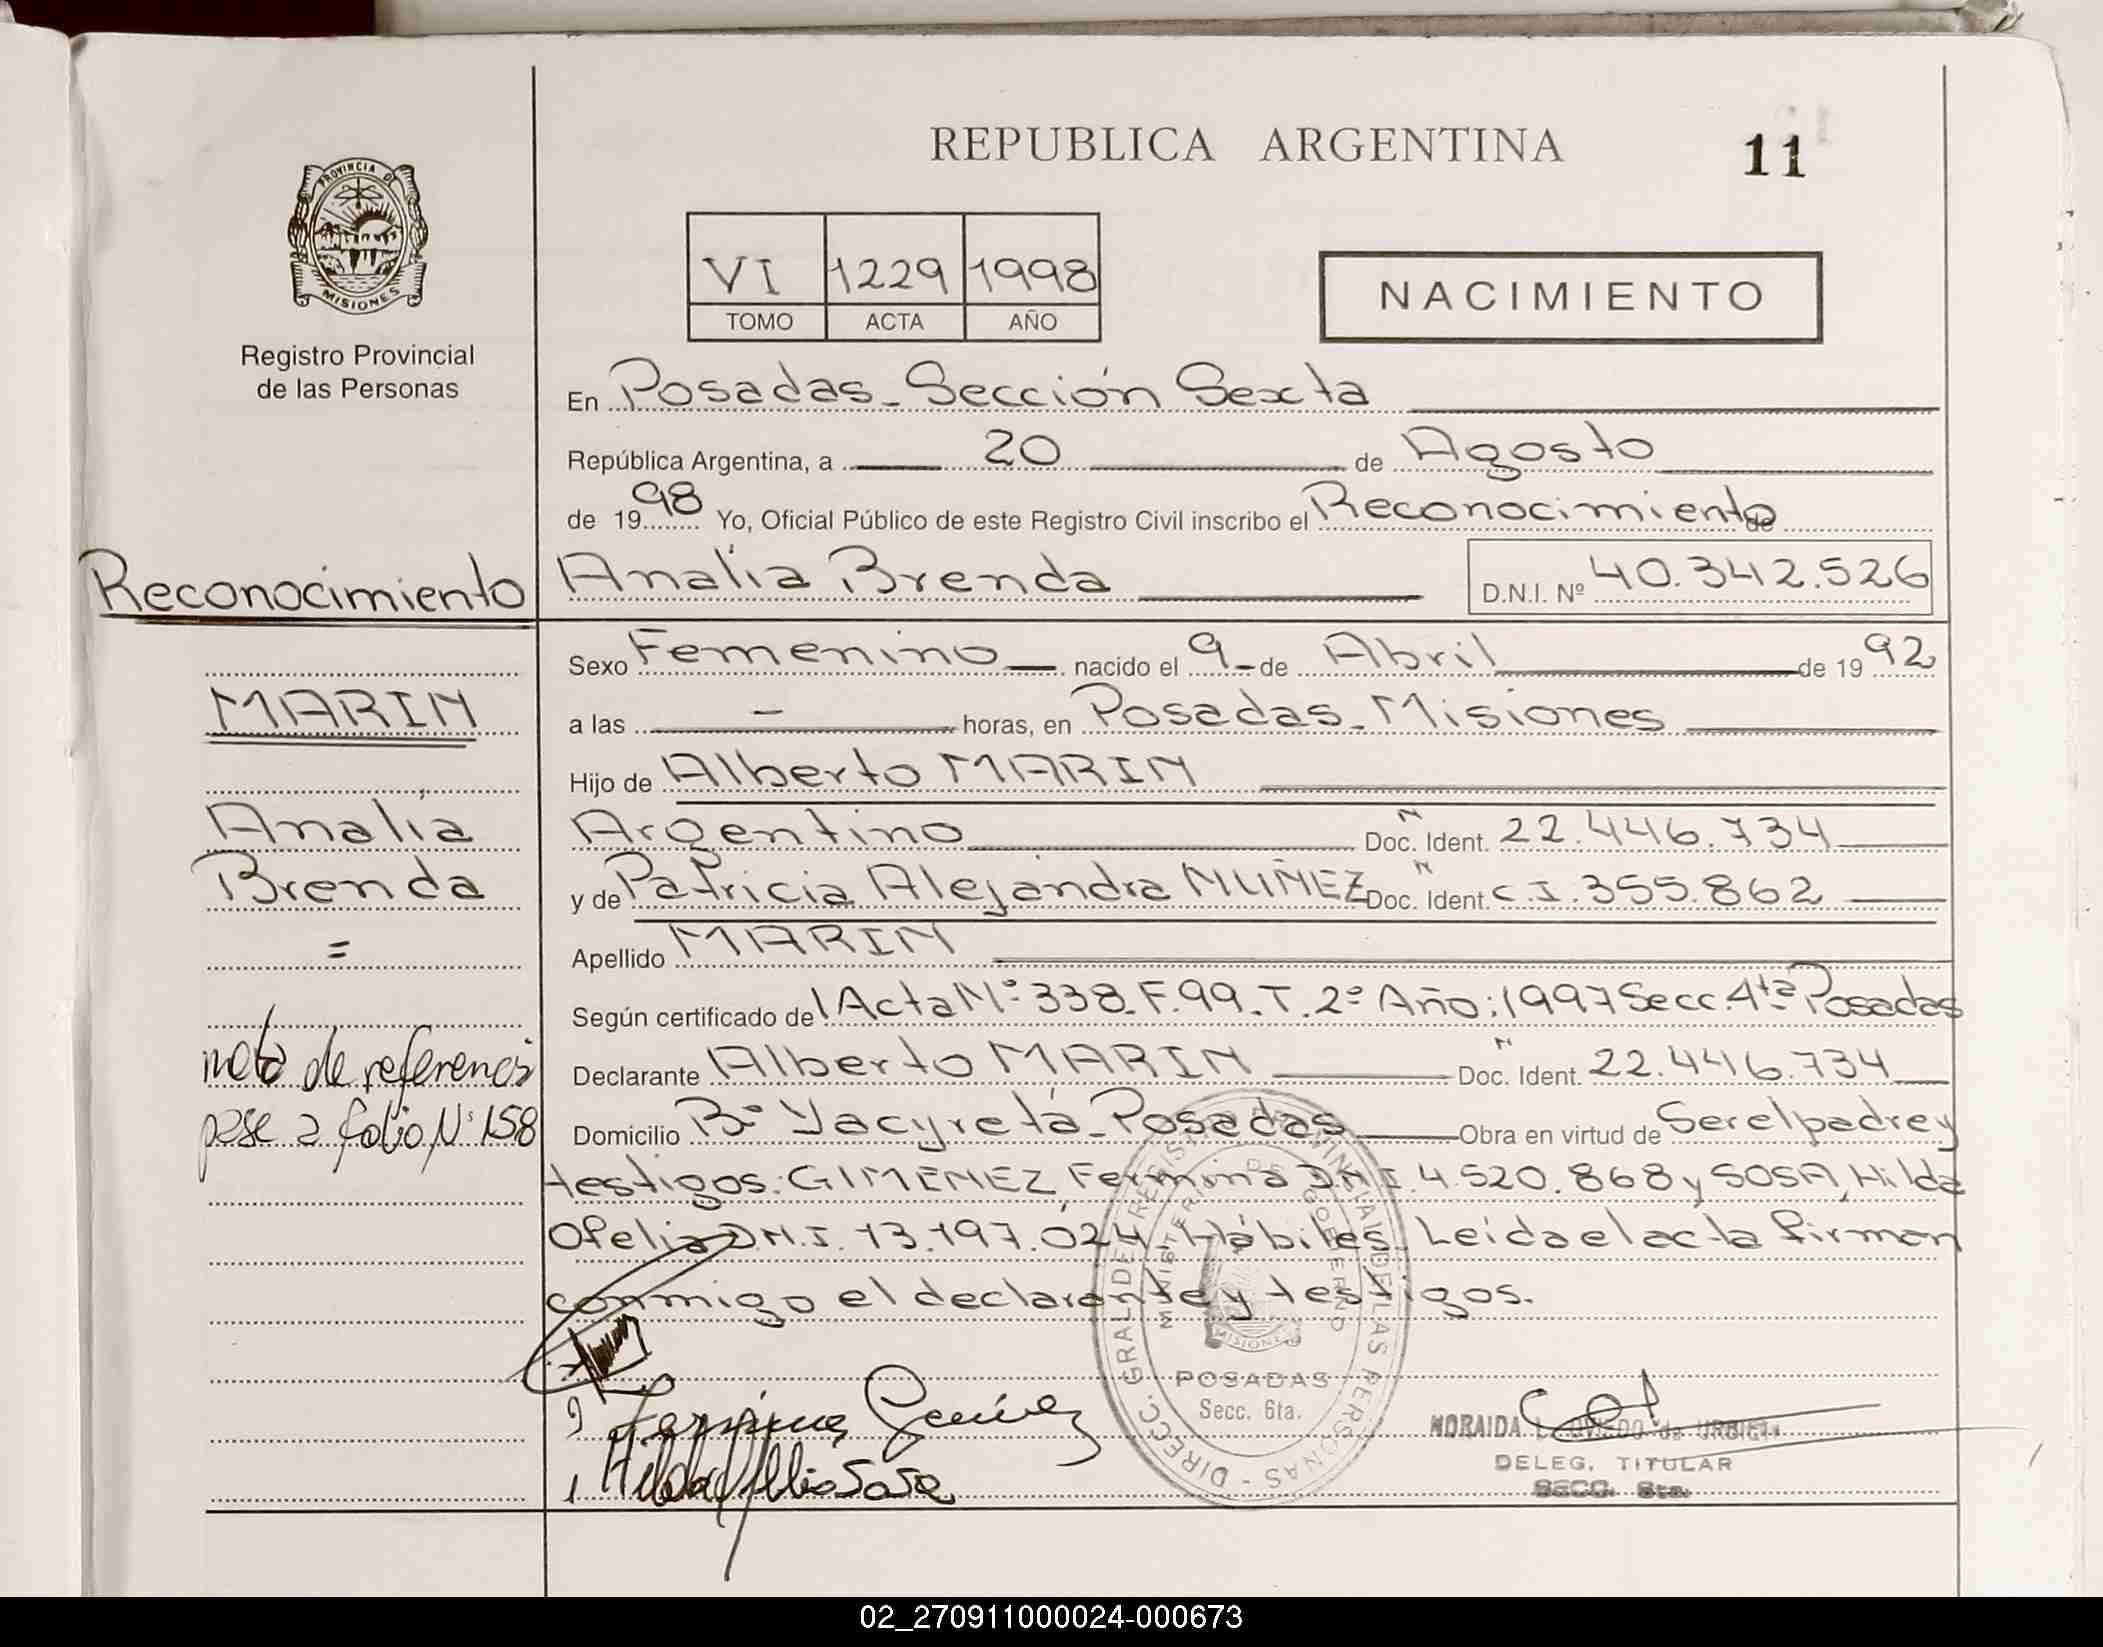 REPUBLICA ARGENTINA
11
PROVINCIA DE
MISIONES
Registro Provincial
de las Personas
VI 1229 1998
TOMO ACTA AÑO
NACIMIENTO
En Posadas - Sección Sexta
República Argentina, a 20 de Agosto
de 1998 Yo, Oficial Público de este Registro Civil inscribo el Reconocimiento de
Reconocimiento
Analía Brenda
D.N.I. Nº 40.342.526
Sexo Femenino nacido el 9 - de Abril de 1992
MARIN
a las - horas, en Posadas - Misiones
Hijo de Alberto MARIN
Analía
Argentino Doc. Ident. 22.446.734
Brenda
y de Patricia Alejandra MUÑEZ Doc. Ident. C.I. 355.862
=
Apellido MARIN
Según certificado de Acta Nº 338. F. 99. T. 2º Año: 1997 Secc. 4ta Posadas
nota de referenci
Declarante Alberto MARIN Doc. Ident. 22.446.734
pase a folio Nº 158
Domicilio Bº Yacyretá - Posadas Obra en virtud de Ser el padre y
testigos: GIMENEZ, Fermina D.N.I. 4.520.868 y SOSA, Hilda
Ofelia D.N.I. 13.197.024 Hábiles. Leída el acta firman
conmigo el declarante y testigos.
DIRECC. GRAL DE REGISTRO PROVINCIAL DE LAS PERSONAS
MINISTERIO DE GOBIERNO
MISIONES
POSADAS
Secc. 6ta.
Fermina Gimenez
Hilda Ofelia Sosa
NORAIDA L. OVIEDO de URBIETA
DELEG. TITULAR
SECC. 6ta.
02_270911000024-000673